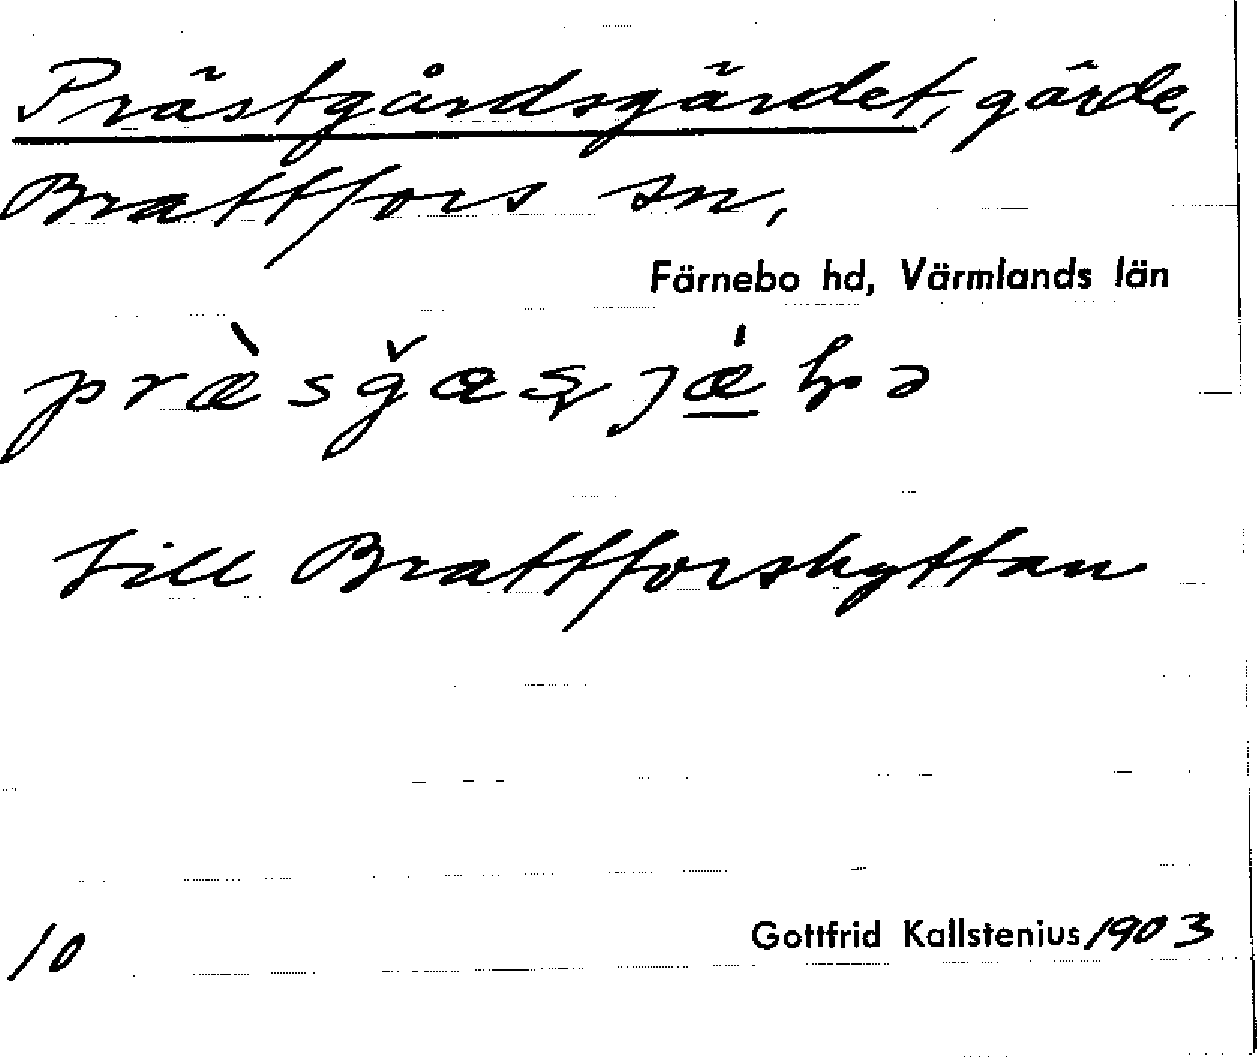 Prästgårdsgärdet, gärde,
Brattfors sn,
Färnebo hd, Värmlands län
till Brattforshyttan
10
Gottfrid Kallstenius 1903